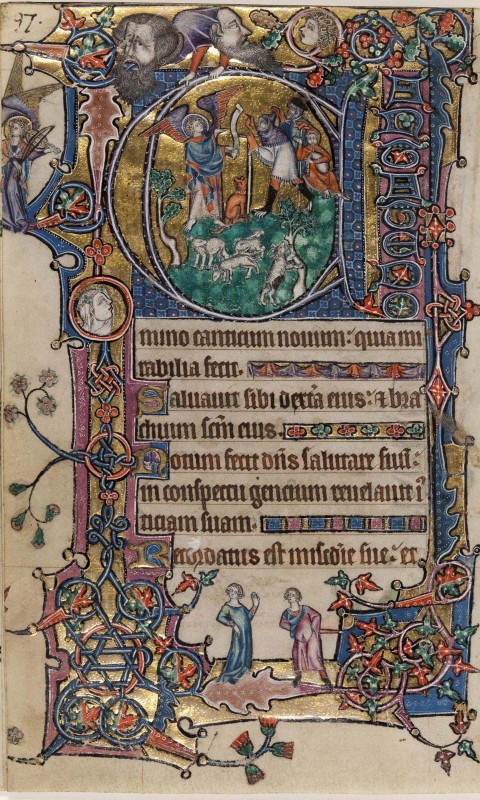 97.
C
mino canticum nouum: quia mi
rabilia fecit.
Saluauit sibi dextra eius: & bra
chium scm eius.
Notum fecit dns salutare suu:
in conspectu gencium reuelauit i
ticiam suam.
Recordatus est miscdie sue: et